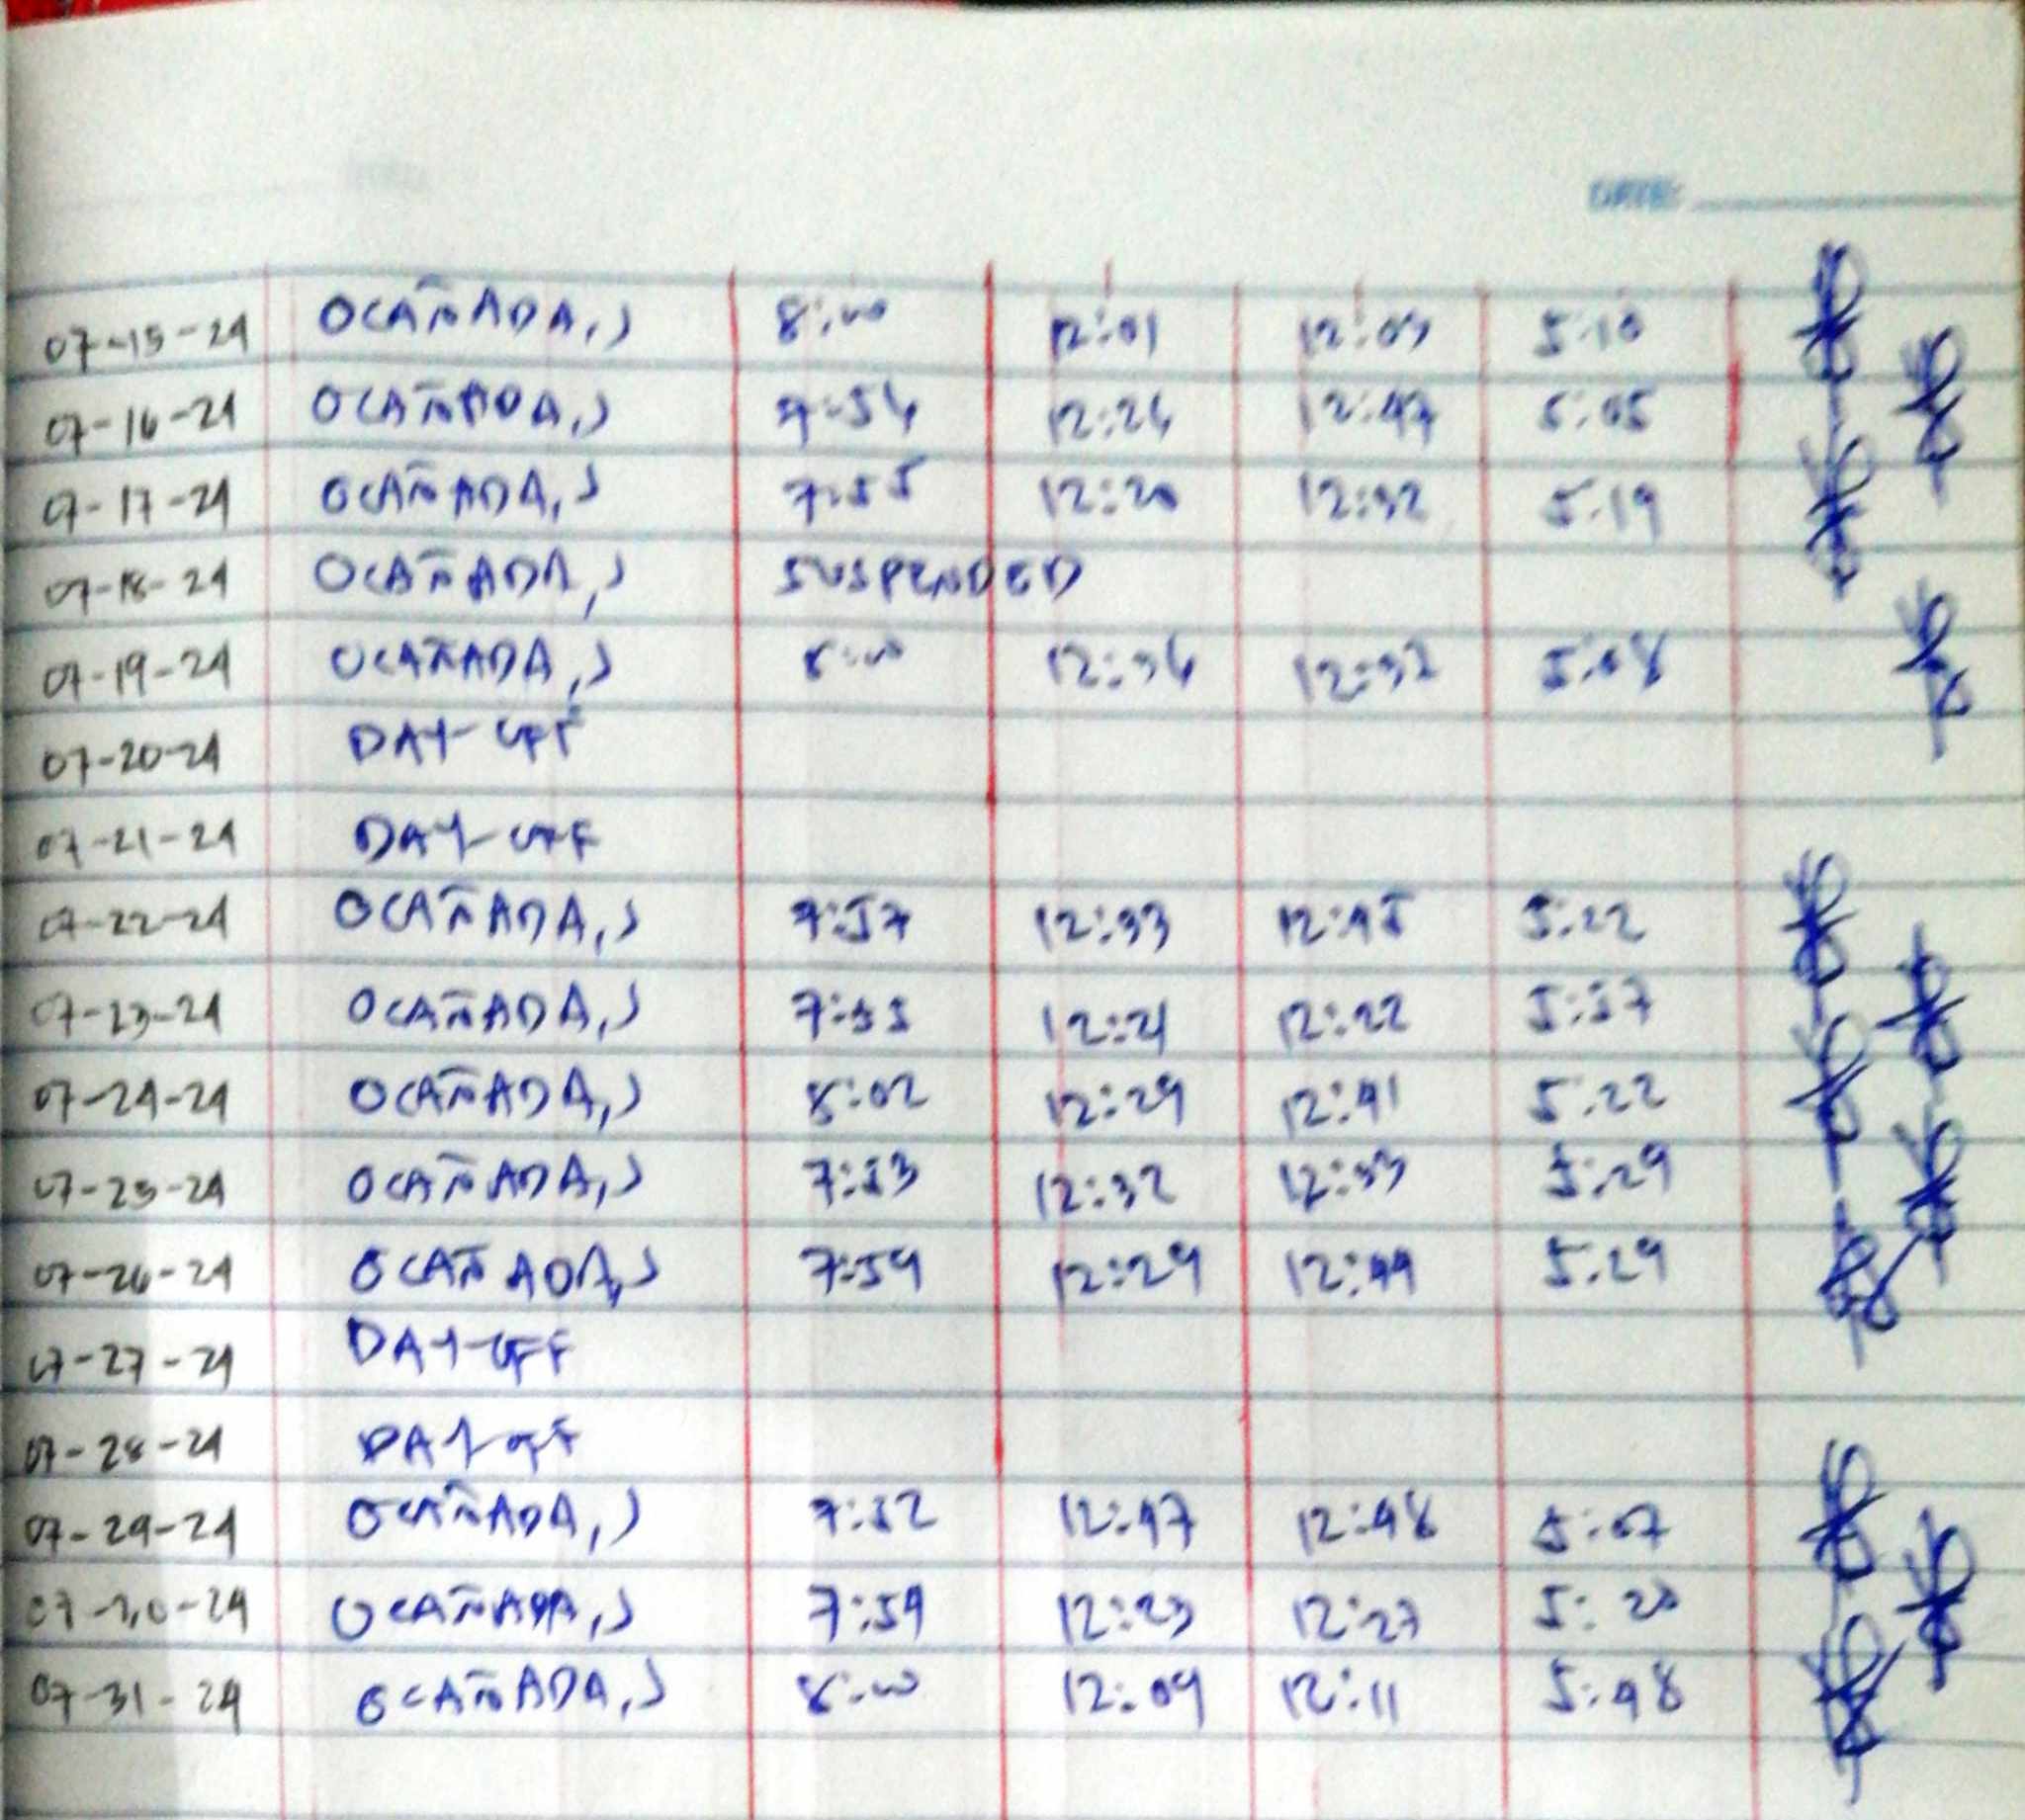 DATE:
07-15-24 OCAÑADA, J 8:00 12:01 12:03 5:10
07-16-24 OCAÑADA, J 7:54 12:26 12:47 5:05
07-17-24 OCAÑADA, J 7:55 12:20 12:32 5:19
07-18-24 OCAÑADA, J SUSPENDED
07-19-24 OCAÑADA, J 8:00 12:36 12:37 5:08
07-20-24 DAY-OFF
07-21-24 DAY-OFF
07-22-24 OCAÑADA, J 7:57 12:33 12:45 5:22
07-23-24 OCAÑADA, J 7:55 12:21 12:22 5:57
07-24-24 OCAÑADA, J 8:02 12:29 12:41 5:22
07-25-24 OCAÑADA, J 7:53 12:32 12:33 5:29
07-26-24 OCAÑADA, J 7:59 12:29 12:44 5:29
07-27-24 DAY-OFF
07-28-24 DAY-OFF
07-29-24 OCAÑADA, J 7:52 12:47 12:48 5:07
07-30-24 OCAÑADA, J 7:59 12:23 12:27 5:20
07-31-24 OCAÑADA, J 8:00 12:09 12:11 5:48